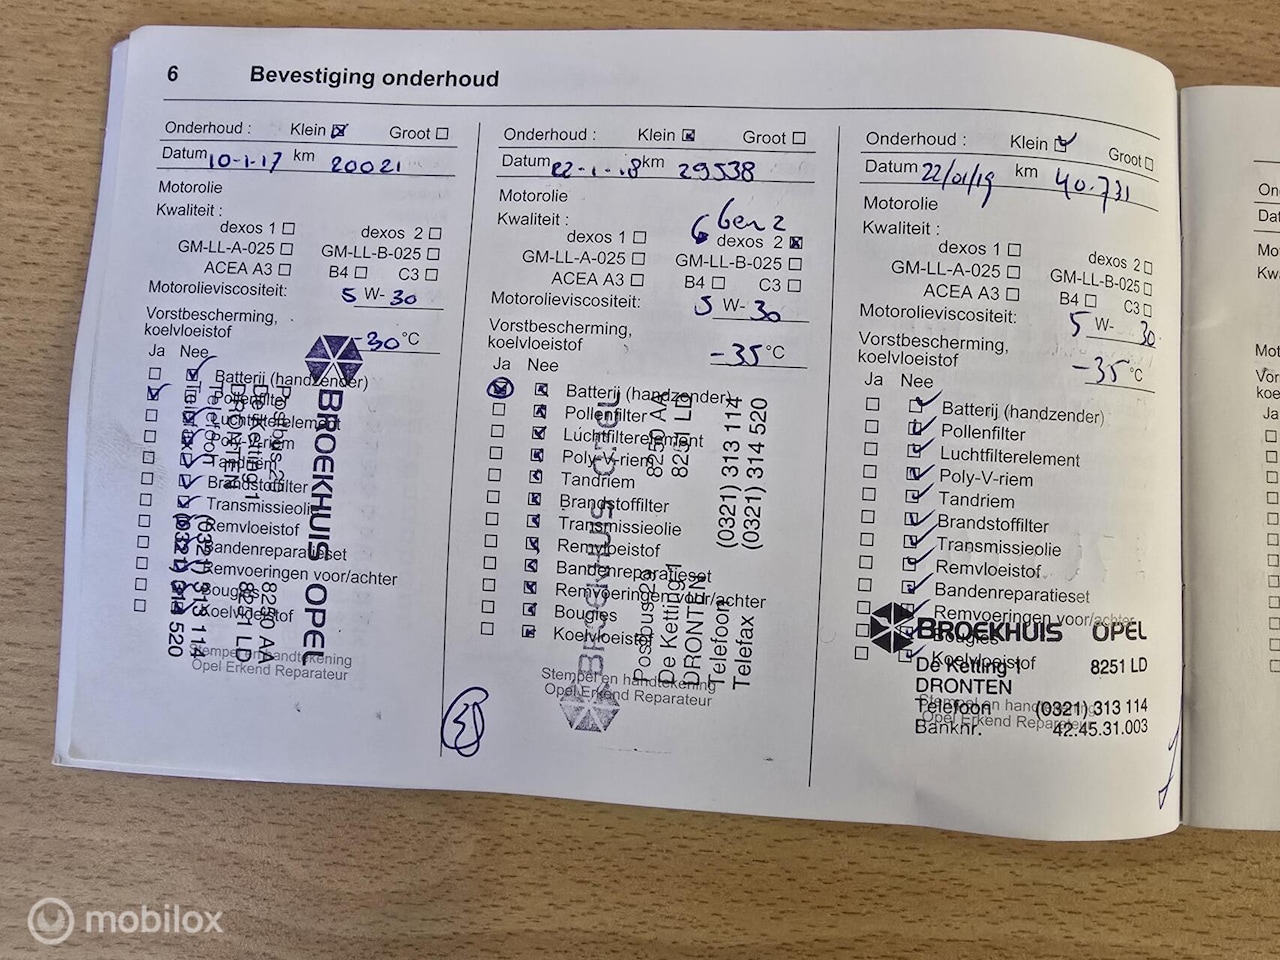 6 Bevestiging onderhoud
Onderhoud : Klein Groot
Datum 10-1-17 km 20021
Motorolie
Kwaliteit :
dexos 1 dexos 2
GM-LL-A-025 GM-LL-B-025
ACEA A3 B4 C3
Motorolieviscositeit: 5 W- 30
Vorstbescherming,
koelvloeistof -30 °C
Ja Nee
Batterij (handzender)
Pollenfilter
Luchtfilterelement
Poly-V-riem
Tandriem
Brandstoffilter
Transmissieolie
Remvloeistof
Bandenreparatieset
Remvoeringen voor/achter
Bougies
Koelvloeistof
Stempel en handtekening
Opel Erkend Reparateur
BROEKHUIS OPEL
Postbus 29 8250 AA
De Ketting 1 8251 LD
DRONTEN
Telefoon (0321) 313 114
Telefax (0321) 314 520
Onderhoud : Klein Groot
Datum 22-1-18 km 29538
Motorolie
Kwaliteit : Gen 2
dexos 1 dexos 2
GM-LL-A-025 GM-LL-B-025
ACEA A3 B4 C3
Motorolieviscositeit: 5 W- 30
Vorstbescherming,
koelvloeistof -35 °C
Ja Nee
Batterij (handzender)
Pollenfilter
Luchtfilterelement
Poly-V-riem
Tandriem
Brandstoffilter
Transmissieolie
Remvloeistof
Bandenreparatieset
Remvoeringen voor/achter
Bougies
Koelvloeistof
Stempel en handtekening
Opel Erkend Reparateur
BROEKHUIS OPEL
Postbus 29 8250 AA
De Ketting 1 8251 LD
DRONTEN
Telefoon (0321) 313 114
Telefax (0321) 314 520
Onderhoud : Klein Groot
Datum 22/01/19 km 40.731
Motorolie
Kwaliteit :
dexos 1 dexos 2
GM-LL-A-025 GM-LL-B-025
ACEA A3 B4 C3
Motorolieviscositeit: 5 W- 30
Vorstbescherming,
koelvloeistof -35 °C
Ja Nee
Batterij (handzender)
Pollenfilter
Luchtfilterelement
Poly-V-riem
Tandriem
Brandstoffilter
Transmissieolie
Remvloeistof
Bandenreparatieset
Remvoeringen voor/achter
Bougies
Koelvloeistof
Stempel en handtekening
Opel Erkend Reparateur
BROEKHUIS OPEL
De Ketting 1 8251 LD
DRONTEN
Telefoon (0321) 313 114
Banknr. 42.45.31.003
mobilox